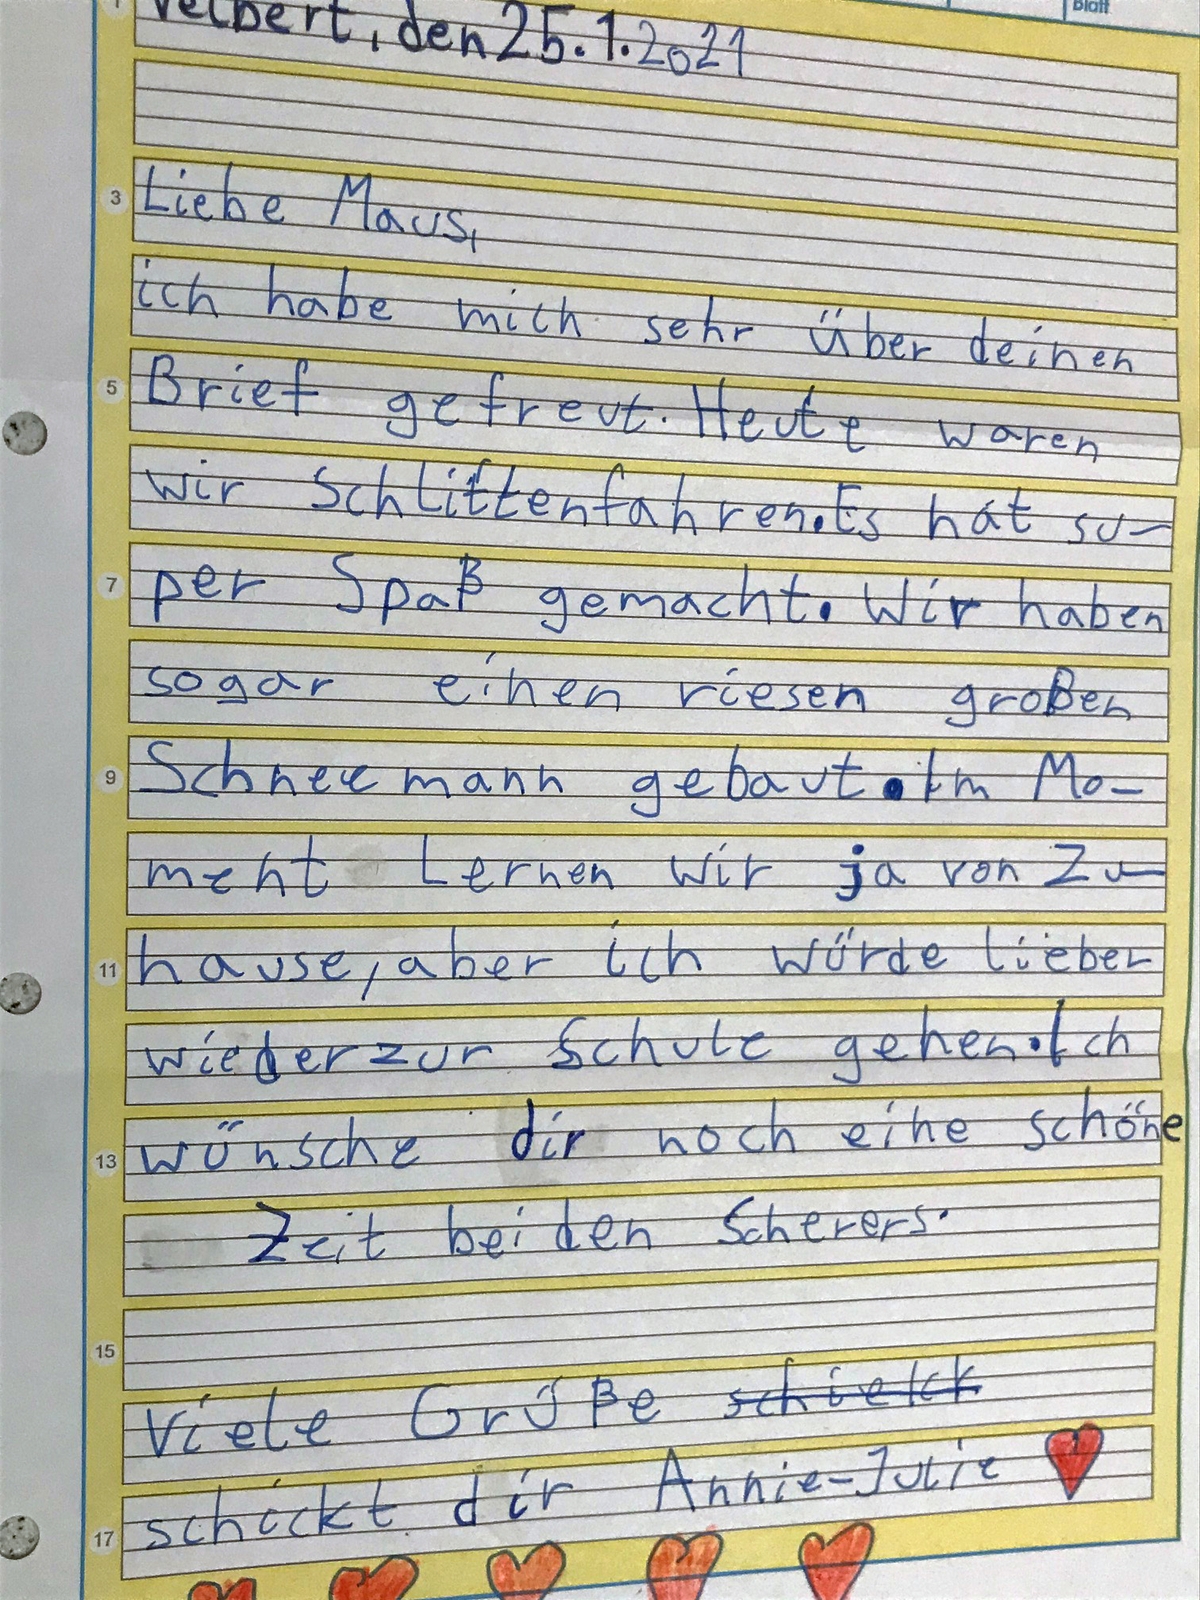 Blatt
Velbert, den 25.1.2021
3
Liebe Maus,
ich habe mich sehr über deinen
5
Brief gefreut. Heute waren
wir Schlittenfahren. Es hat su-
7
per Spaß gemacht. Wir haben
sogar einen riesen großen
9
Schneemann gebaut. Im Mo-
ment Lernen wir ja von Zu-
11
hause, aber ich würde lieber
wieder zur Schule gehen. Ich
13
wünsche dir noch eine schöne
Zeit bei den Scherers.
15
Viele Grüße schielck
17
schickt dir Annie-Julie